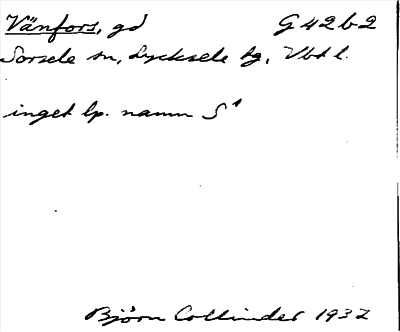 Vänfors, gd G 42 b 2
Sorsele sn, Lycksele tg, Vbt l.
inget lp. namn S¹
Björn Collinder 1932